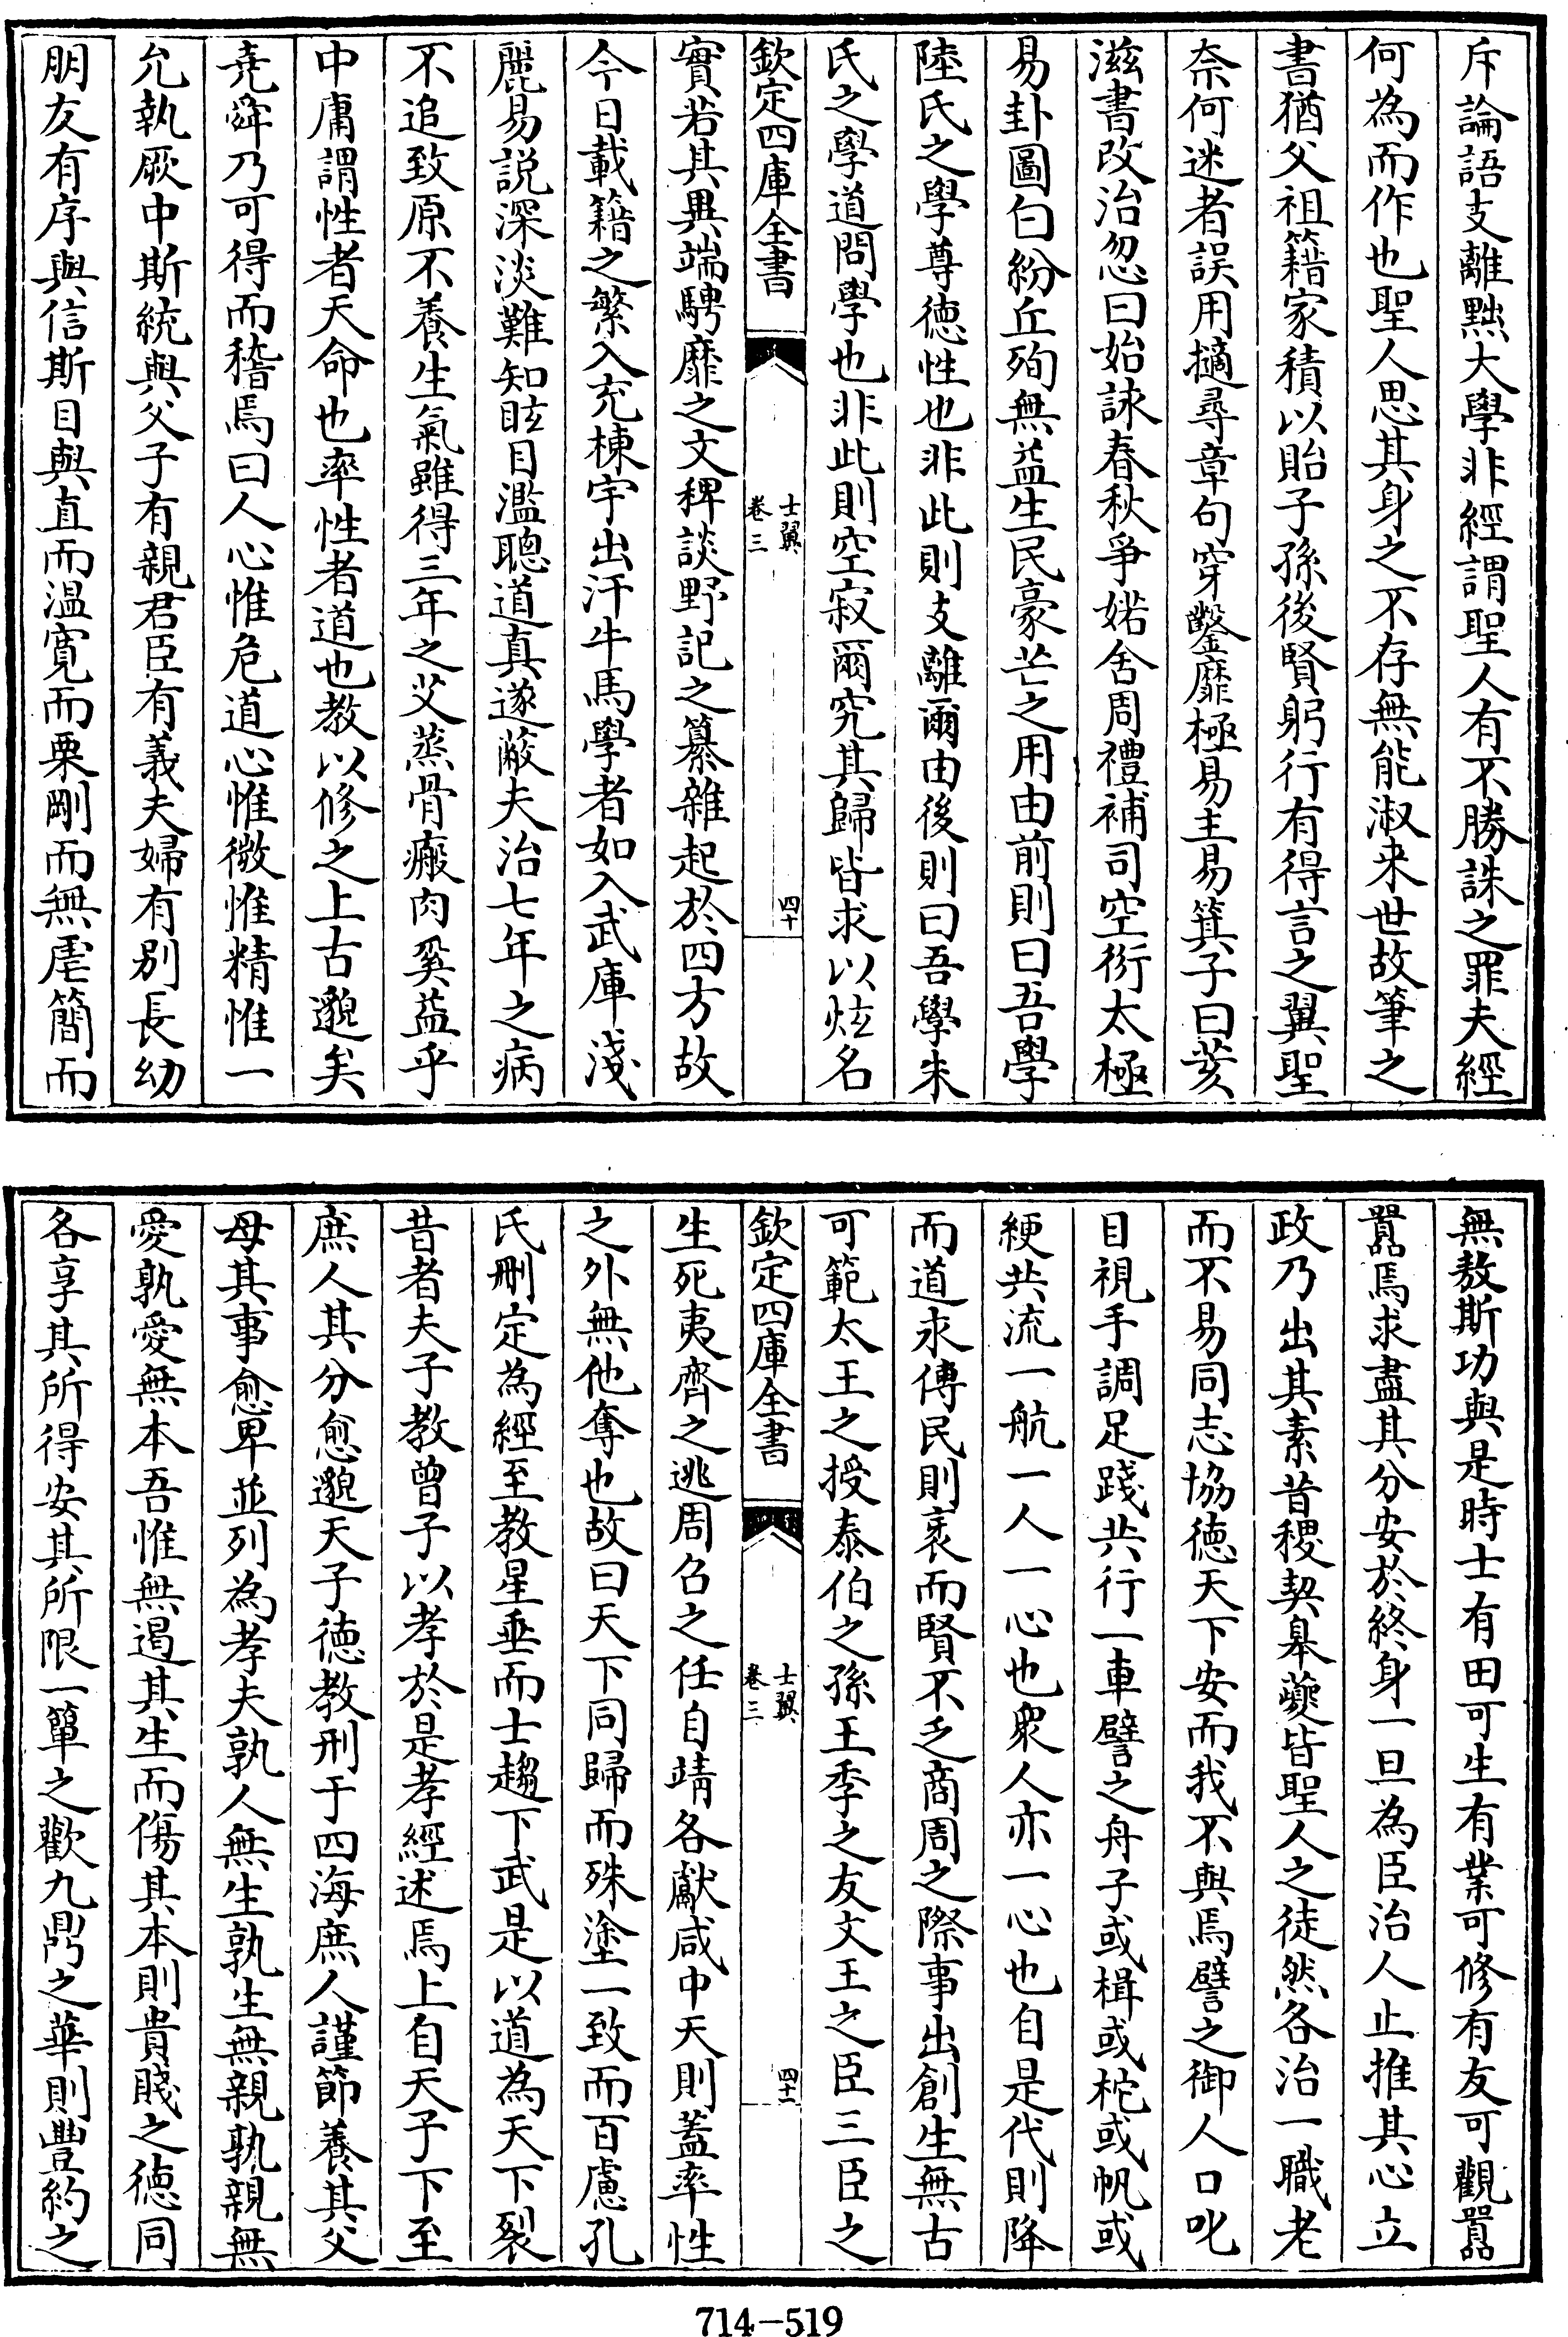 斥論語支離黜大學非經謂聖人有不勝誅之罪夫經
何為而作也聖人思其身之不存無能淑来世故筆之
書猶父祖籍家積以貽子孫後賢躬行有得言之翼聖
奈何迷者誤用擿尋章句穿鑿靡極易主易箕子曰荄
滋書改治忽曰始詠春秋爭婼舍周禮補司空衍太極
易卦圖白紛丘殉無益生民豪芒之用由前則曰吾學
陸氏之學尊徳性也非此則支離爾由後則曰吾學朱
氏之學道問學也非此則空寂爾究其歸皆求以炫名
欽定四庫全書
士翼
卷三
四十
實若其異端騁靡之文稗談野記之纂雜起於四方故
今日載籍之繁入充棟宇出汗牛馬學者如入武庫淺
麗易説深淡難知眩目濫聰道真遂蔽夫治七年之病
不追致原不養生氣雖得三年之艾蒸骨瘢肉奚益乎
中庸謂性者天命也率性者道也教以修之上古邈矣
堯舜乃可得而稽焉曰人心惟危道心惟微惟精惟一
允執厥中斯統與父子有親君臣有義夫婦有别長幼
朋友有序與信斯目與直而温寛而栗剛而無虐簡而
無敖斯功與是時士有田可生有業可修有友可觀囂
囂焉求盡其分安於終身一旦為臣治人止推其心立
政乃出其素昔稷契臯夔皆聖人之徒然各治一職老
而不易同志協徳天下安而我不與焉譬之御人口叱
目視手調足踐共行一車譬之舟子或楫或柁或帆或
綆共流一航一人一心也衆人亦一心也自是代則降
而道永傳民則衺而賢不乏商周之際事出創生無古
可範太王之授泰伯之孫王季之友文王之臣三臣之
欽定四庫全書
士翼
卷三
四十一
生死夷齊之逃周召之任自靖各獻咸中天則蓋率性
之外無他奪也故曰天下同歸而殊塗一致而百慮孔
氏刪定為經至教星垂而士趨下武是以道為天下裂
昔者夫子教曾子以孝於是孝經述焉上自天子下至
庶人其分愈邈天子徳教刑于四海庶人謹節養其父
母其事愈卑並列為孝夫孰人無生孰生無親孰親無
愛孰愛無本吾惟無遏其生而傷其本則貴賤之徳同
各享其所得安其所限一簞之歡九鼎之華則豐約之
714-519